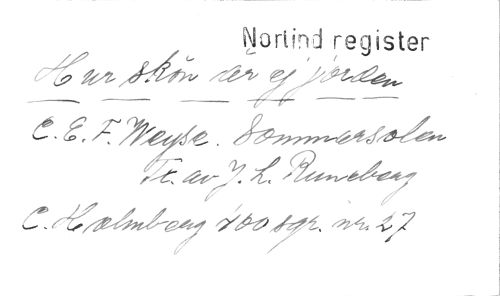 Norlind register
Hur skön är ej jorden
C. E. F. Weyse. Sommersolen
Tx. av J. L. Runeberg
C. Holmberg 100 sgr. nr. 27